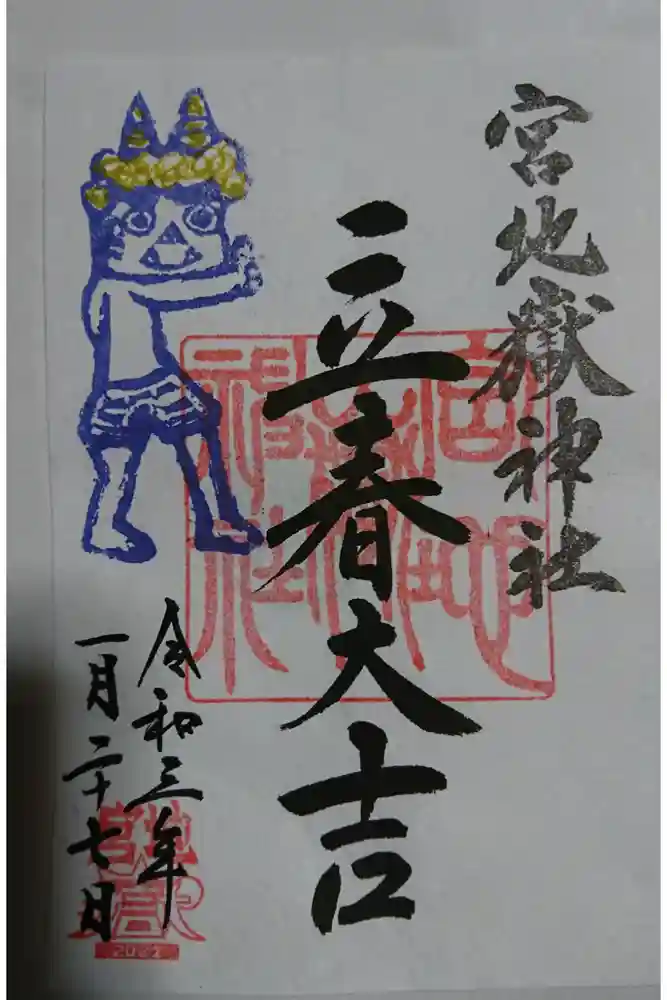 宮地嶽神社
立春大吉
令和三年
一月二十七日
宮地嶽神社
宮地嶽
2021